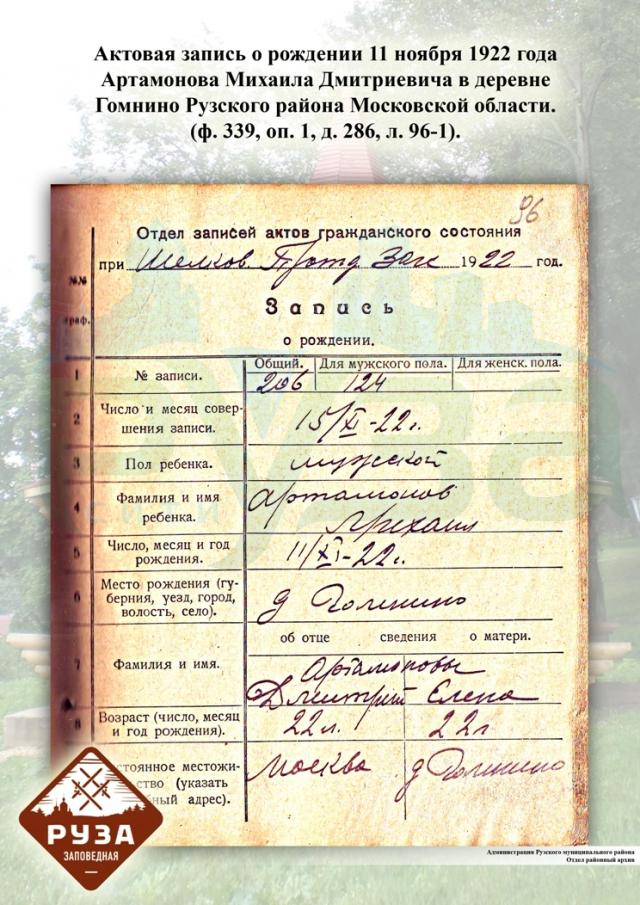 Актовая запись о рождении 11 ноября 1922 года
Артамонова Михаила Дмитриевича в деревне
Гомнино Рузского района Московской области.
(ф. 339, оп. 1, д. 286, л. 96-1).
96
Отдел записей актов гражданского состояния
при Шелков. 1922 год.
№№ граф.
Запись
о рождении.
Общий. Для мужского пола. Для женск. пола.
1 № записи. 206 124
2 Число и месяц совер-
шения записи. 15/XI-22г.
3 Пол ребенка. мужской
4 Фамилия и имя
ребенка. Артамонов
Михаил
5 Число, месяц и год
рождения. 11/XI-22г.
6 Место рождения (гу-
берния, уезд, город,
волость, село). д Гомнино
об отце сведения о матери.
7 Фамилия и имя. Артамоновы
Дмитрий Елена
8 Возраст (число, месяц
и год рождения). 22л. 22л
стоянное местожи-
ство (указать
ный адрес). Москва д Гомнино
РУЗА
ЗАПОВЕДНАЯ
Администрация Рузского муниципального района
Отдел районный архив